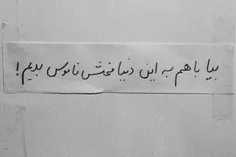 بیا باهم به این دنیا فحش ناموس بدیم!